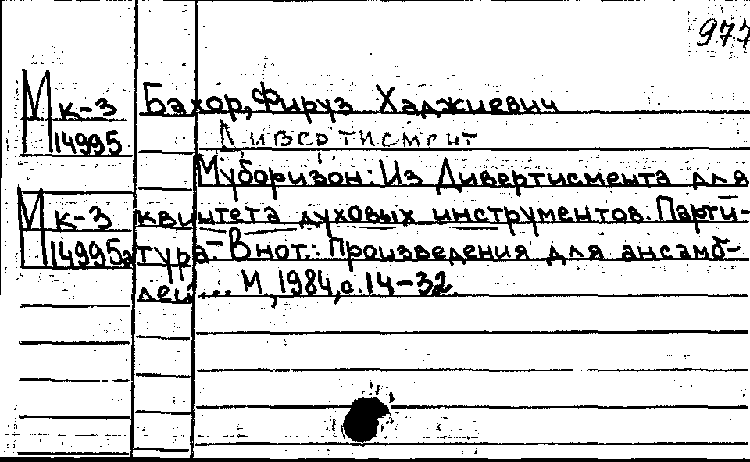 М к-3 Бахор, Фируз Хаджиевич
14995 Дивертисмент
Муборизон: Из Дивертисмента для
М к-3 квинтета духовых инструментов. Парти-
14995а тура. – В нот.: Произведения для ансамб-
лей... М, 1984, с. 14-32.